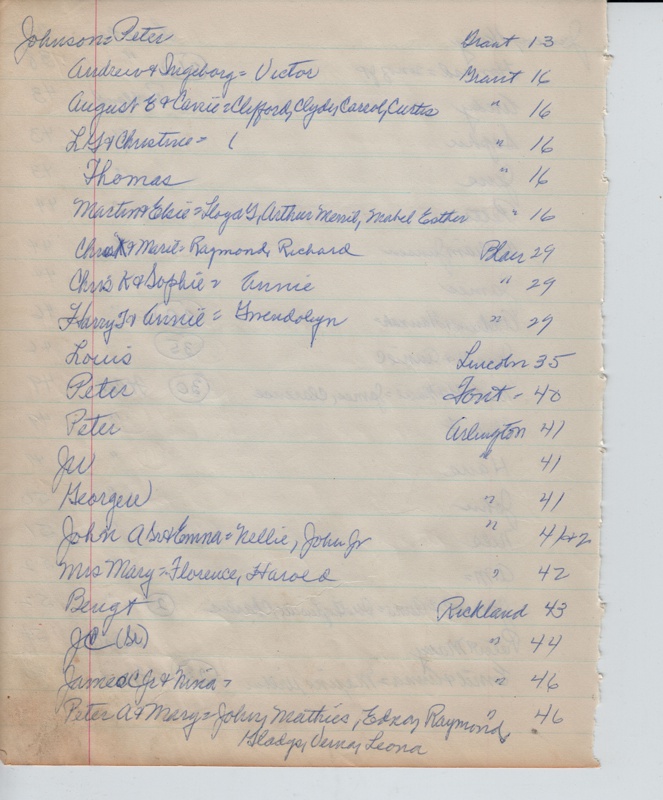 Johnson = Peter Grant 13
Andrew & Ingeborg = Victor Grant 16
August E & Carrie = Clifford, Clyde, Carrol, Curtis " 16
L G & Christine = ( " 16
Thomas " 16
Martin & Elsie = Lloyd G, Arthur Merril, Mabel Esther " 16
Chris K & Marie = Raymond, Richard Blair 29
Chris K & Sophie = Annie " 29
Harry T & Annie = Gwendolyn " 29
Louis Lincoln 35
Peter Font - 40
Peter Arlington 41
JW " 41
George W " 41
John A Sr & Emma = Nellie, John Jr " 41+42
Mrs Mary = Florence, Harold " 42
Bengt Richland 43
JC (Sr) " 44
James C Jr & Nina = " 46
Peter A & Mary = John, Mathies, Edna, Raymond, " 46
Gladys, Verna, Leona